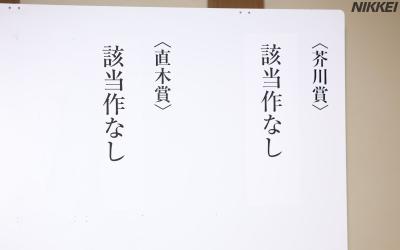 NIKKEI
〈芥川賞〉
該当作なし
〈直木賞〉
該当作なし